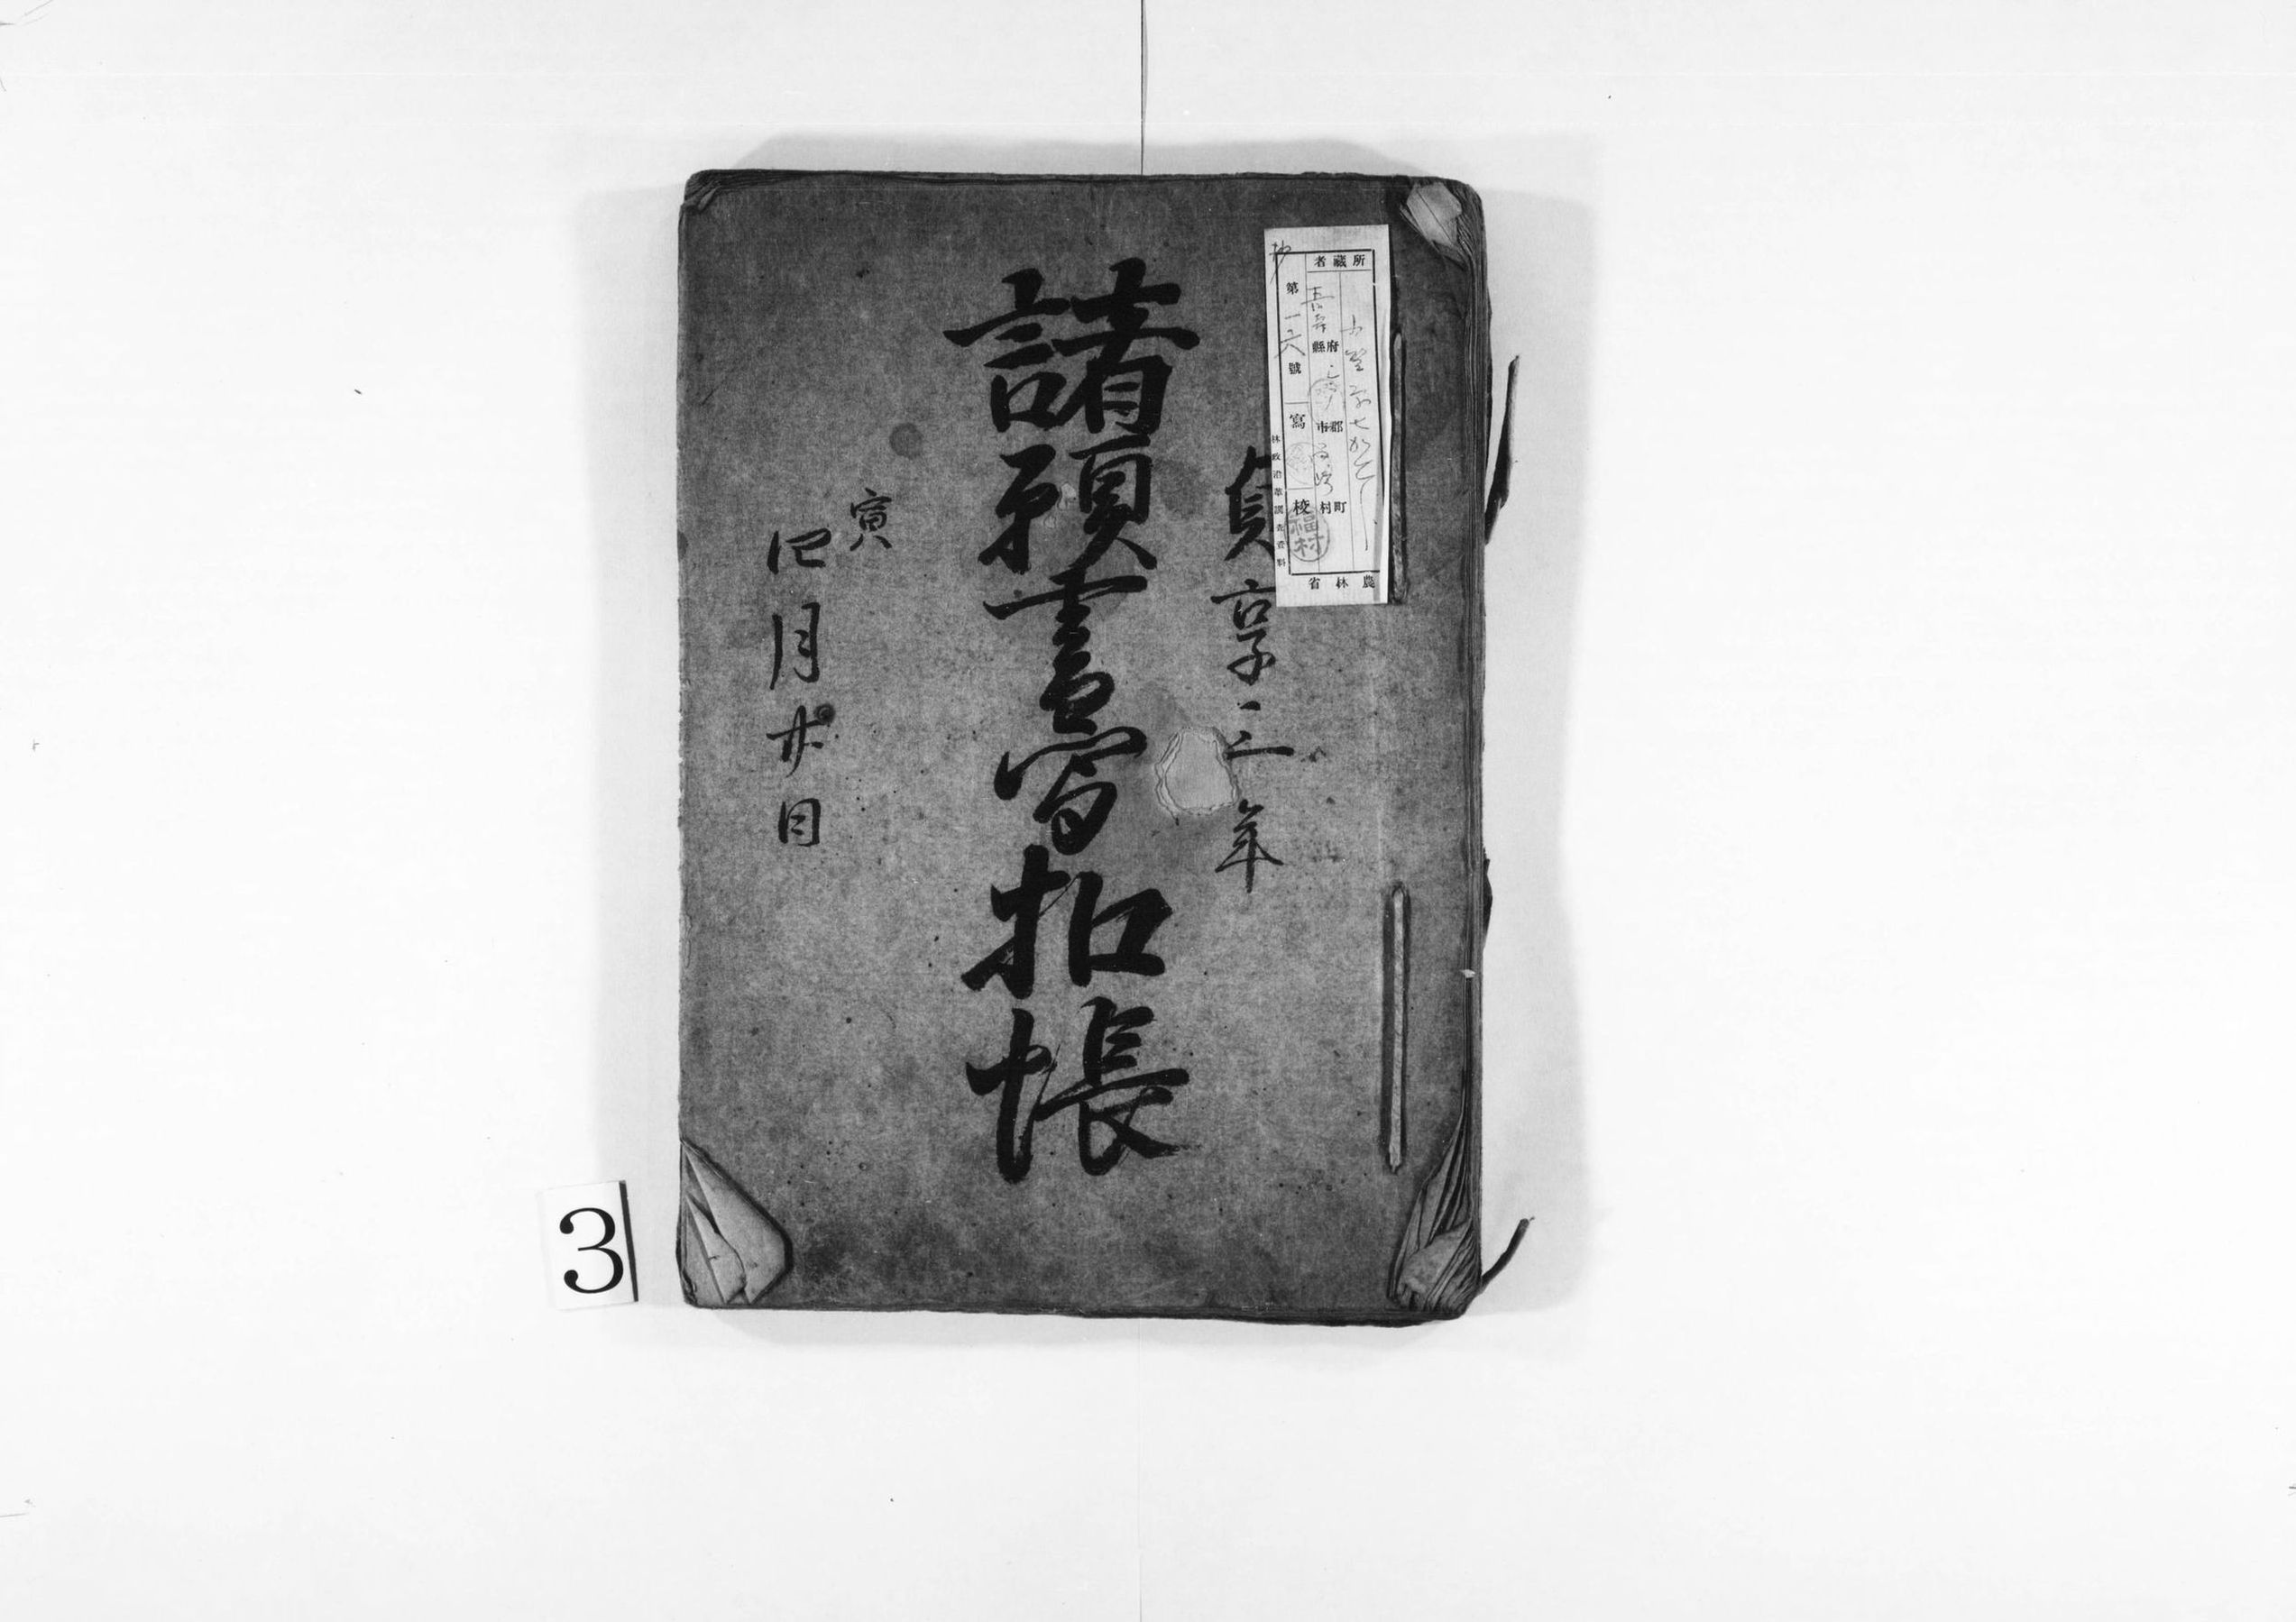 貞享三年
諸願書寫扣帳
寅
四月廿日
所藏者
縣府
市郡
村町
第一二六號
寫
校
福村
農林省
林政沿革調査資料
3